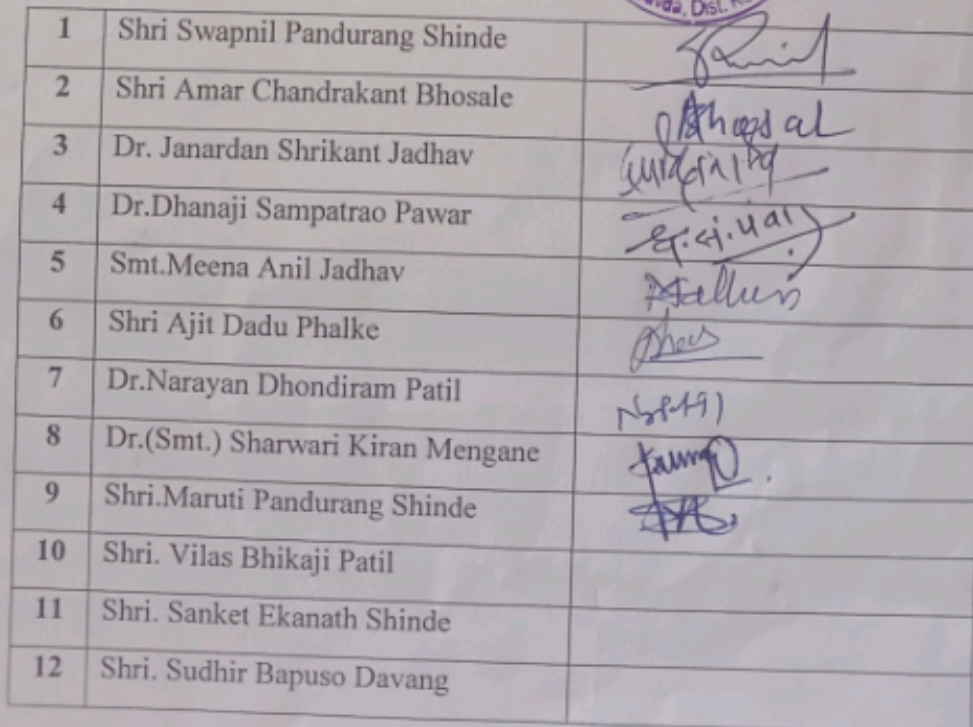 Dist.
1 Shri Swapnil Pandurang Shinde
2 Shri Amar Chandrakant Bhosale
3 Dr. Janardan Shrikant Jadhav
4 Dr.Dhanaji Sampatrao Pawar
5 Smt.Meena Anil Jadhav
6 Shri Ajit Dadu Phalke
7 Dr.Narayan Dhondiram Patil
8 Dr.(Smt.) Sharwari Kiran Mengane
9 Shri.Maruti Pandurang Shinde
10 Shri. Vilas Bhikaji Patil
11 Shri. Sanket Ekanath Shinde
12 Shri. Sudhir Bapuso Davang